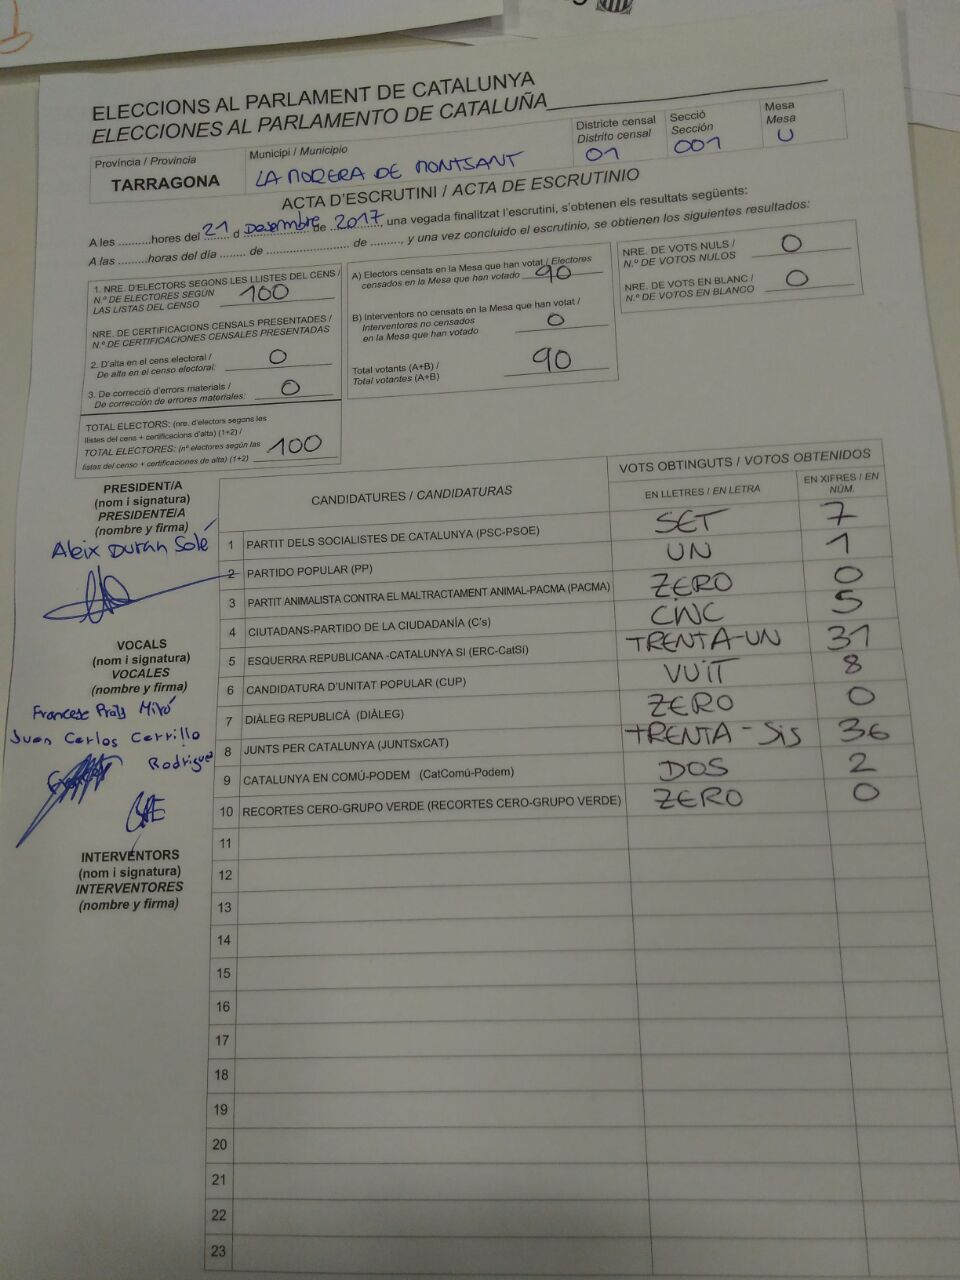 ELECCIONS AL PARLAMENT DE CATALUNYA
ELECCIONES AL PARLAMENTO DE CATALUÑA
Província / Provincia
TARRAGONA
Municipi / Municipio
LA MORERA DE MONTSANT
Districte censal
Distrito censal
01
Secció
Sección
001
Mesa
Mesa
U
ACTA D'ESCRUTINI / ACTA DE ESCRUTINIO
A les ..........hores del 21 d Desembre de 2017, una vegada finalitzat l'escrutini, s'obtenen els resultats següents:
A las .........horas del día ........ de ........................ de ........., y una vez concluido el escrutinio, se obtienen los siguientes resultados:
1. NRE. D'ELECTORS SEGONS LES LLISTES DEL CENS /
N.º DE ELECTORES SEGÚN
LAS LISTAS DEL CENSO 100
NRE. DE CERTIFICACIONS CENSALS PRESENTADES /
N.º DE CERTIFICACIONES CENSALES PRESENTADAS
2. D'alta en el cens electoral /
De alta en el censo electoral: 0
3. De correcció d'errors materials /
De corrección de errores materiales: 0
TOTAL ELECTORS: (nre. d'electors segons les
llistes del cens + certificacions d'alta) (1+2) /
TOTAL ELECTORES: (nº electores según las
listas del censo + certificaciones de alta) (1+2) 100
A) Electors censats en la Mesa que han votat / Electores
censados en la Mesa que han votado 90
B) Interventors no censats en la Mesa que han votat /
Interventores no censados
en la Mesa que han votado 0
Total votants (A+B) /
Total votantes (A+B) 90
NRE. DE VOTS NULS /
N.º DE VOTOS NULOS 0
NRE. DE VOTS EN BLANC /
N.º DE VOTOS EN BLANCO 0
PRESIDENT/A
(nom i signatura)
PRESIDENTE/A
(nombre y firma)
Aleix Duran Solé
VOCALS
(nom i signatura)
VOCALES
(nombre y firma)
Francesc Prats Miró
Juan Carlos Carrillo
Rodriguez
INTERVENTORS
(nom i signatura)
INTERVENTORES
(nombre y firma)
CANDIDATURES / CANDIDATURAS
VOTS OBTINGUTS / VOTOS OBTENIDOS
EN LLETRES / EN LETRA
EN XIFRES / EN NÚM.
1 PARTIT DELS SOCIALISTES DE CATALUNYA (PSC-PSOE) SET 7
2 PARTIDO POPULAR (PP) UN 1
3 PARTIT ANIMALISTA CONTRA EL MALTRACTAMENT ANIMAL-PACMA (PACMA) ZERO 0
4 CIUTADANS-PARTIDO DE LA CIUDADANÍA (C's) CINC 5
5 ESQUERRA REPUBLICANA -CATALUNYA SÍ (ERC-CatSí) TRENTA-UN 31
6 CANDIDATURA D'UNITAT POPULAR (CUP) VUIT 8
7 DIÀLEG REPUBLICÀ (DIÀLEG) ZERO 0
8 JUNTS PER CATALUNYA (JUNTSxCAT) TRENTA-SIS 36
9 CATALUNYA EN COMÚ-PODEM (CatComú-Podem) DOS 2
10 RECORTES CERO-GRUPO VERDE (RECORTES CERO-GRUPO VERDE) ZERO 0
11
12
13
14
15
16
17
18
19
20
21
22
23